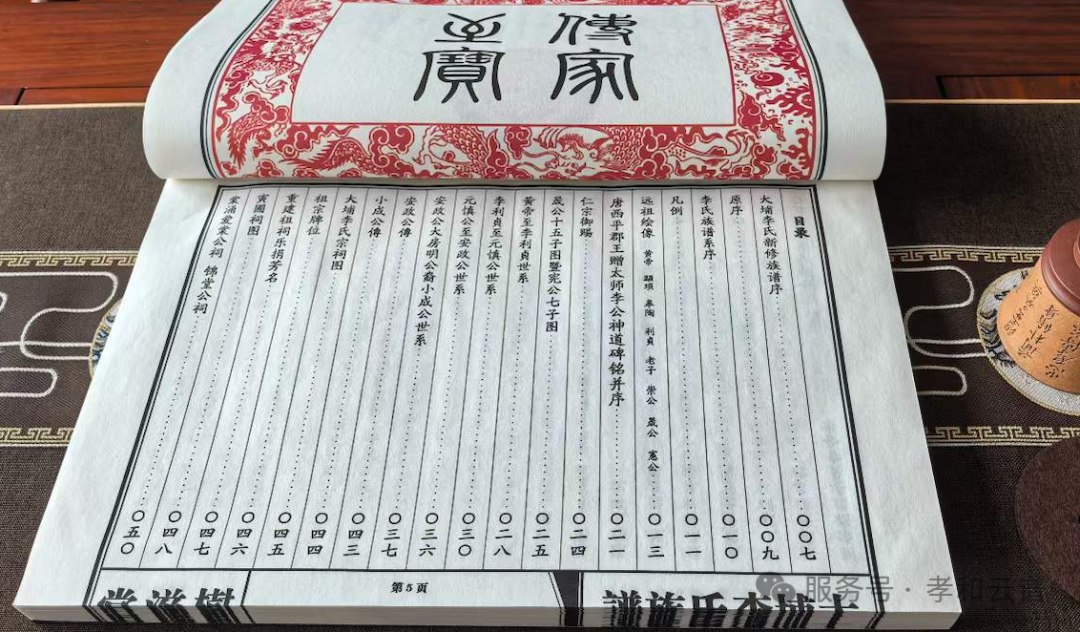 傳家
至寶
目录
大埔李氏新修族谱序 〇〇七
原序 〇〇九
李氏族谱系序 〇一〇
凡例 〇一一
远祖绘像 黄帝 顓頊 皋陶 利貞 老子 崇公 晟公 憲公 〇一三
唐西平郡王赠太师李公神道碑铭并序 〇二一
仁宗御赐 〇二四
晟公十五子图暨宪公七子图 〇二五
黄帝至李利贞世系 〇二八
李利贞至元慎公世系 〇三〇
元慎公至安政公世系 〇三六
安政公大房明公裔小成公世系 〇三七
安政公傳 〇四三
小成公傳 〇四四
大埔李氏宗祠图 〇四五
祖宗牌位 〇四六
重建祖祠乐捐芳名 〇四七
寅圃祠图 〇四八
公祠 錦堂公祠 〇五〇
大埔李氏族譜
第5页
樹滋堂
服务号 · 孝和云